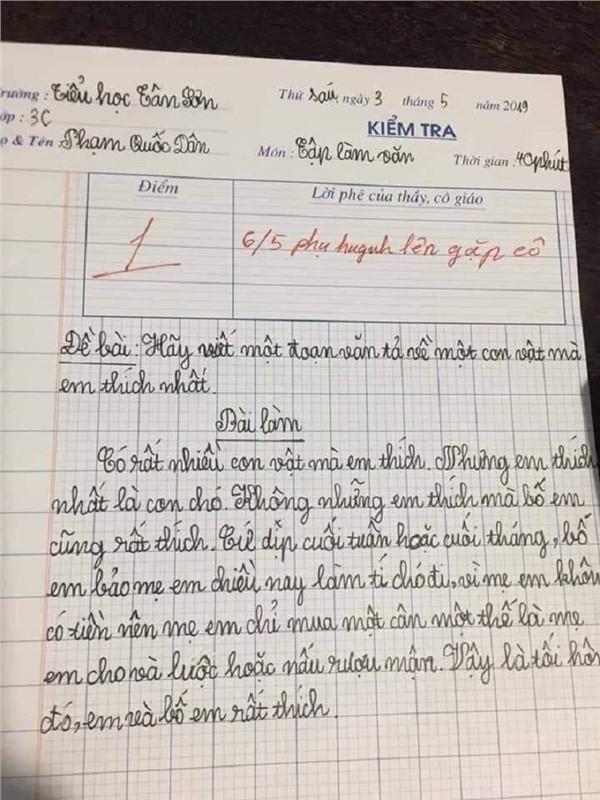 Trường : Tiểu học Tân Sơn
Thứ sáu, ngày 3 tháng 5 năm 2019
Lớp : 3C
KIỂM TRA
Họ & Tên : Phạm Quốc Dân
Môn : Tập làm văn Thời gian : 40 phút
Điểm
Lời phê của thầy, cô giáo
1
6/5 phụ huynh lên gặp cô
Đề bài : Hãy viết một đoạn văn tả về một con vật mà
em thích nhất.
Bài làm
Có rất nhiều con vật mà em thích. Nhưng em thích
nhất là con chó. Không những em thích mà bố em
cũng rất thích. Cứ dịp cuối tuần hoặc cuối tháng, bố
em bảo mẹ em chiều nay làm tí chó đi, vì mẹ em khôn
có tiền nên mẹ em chỉ mua một cân một thế là mẹ
em cho và luộc hoặc nấu rượu mận. Vậy là tối hôm
đó, em và bố em rất thích.